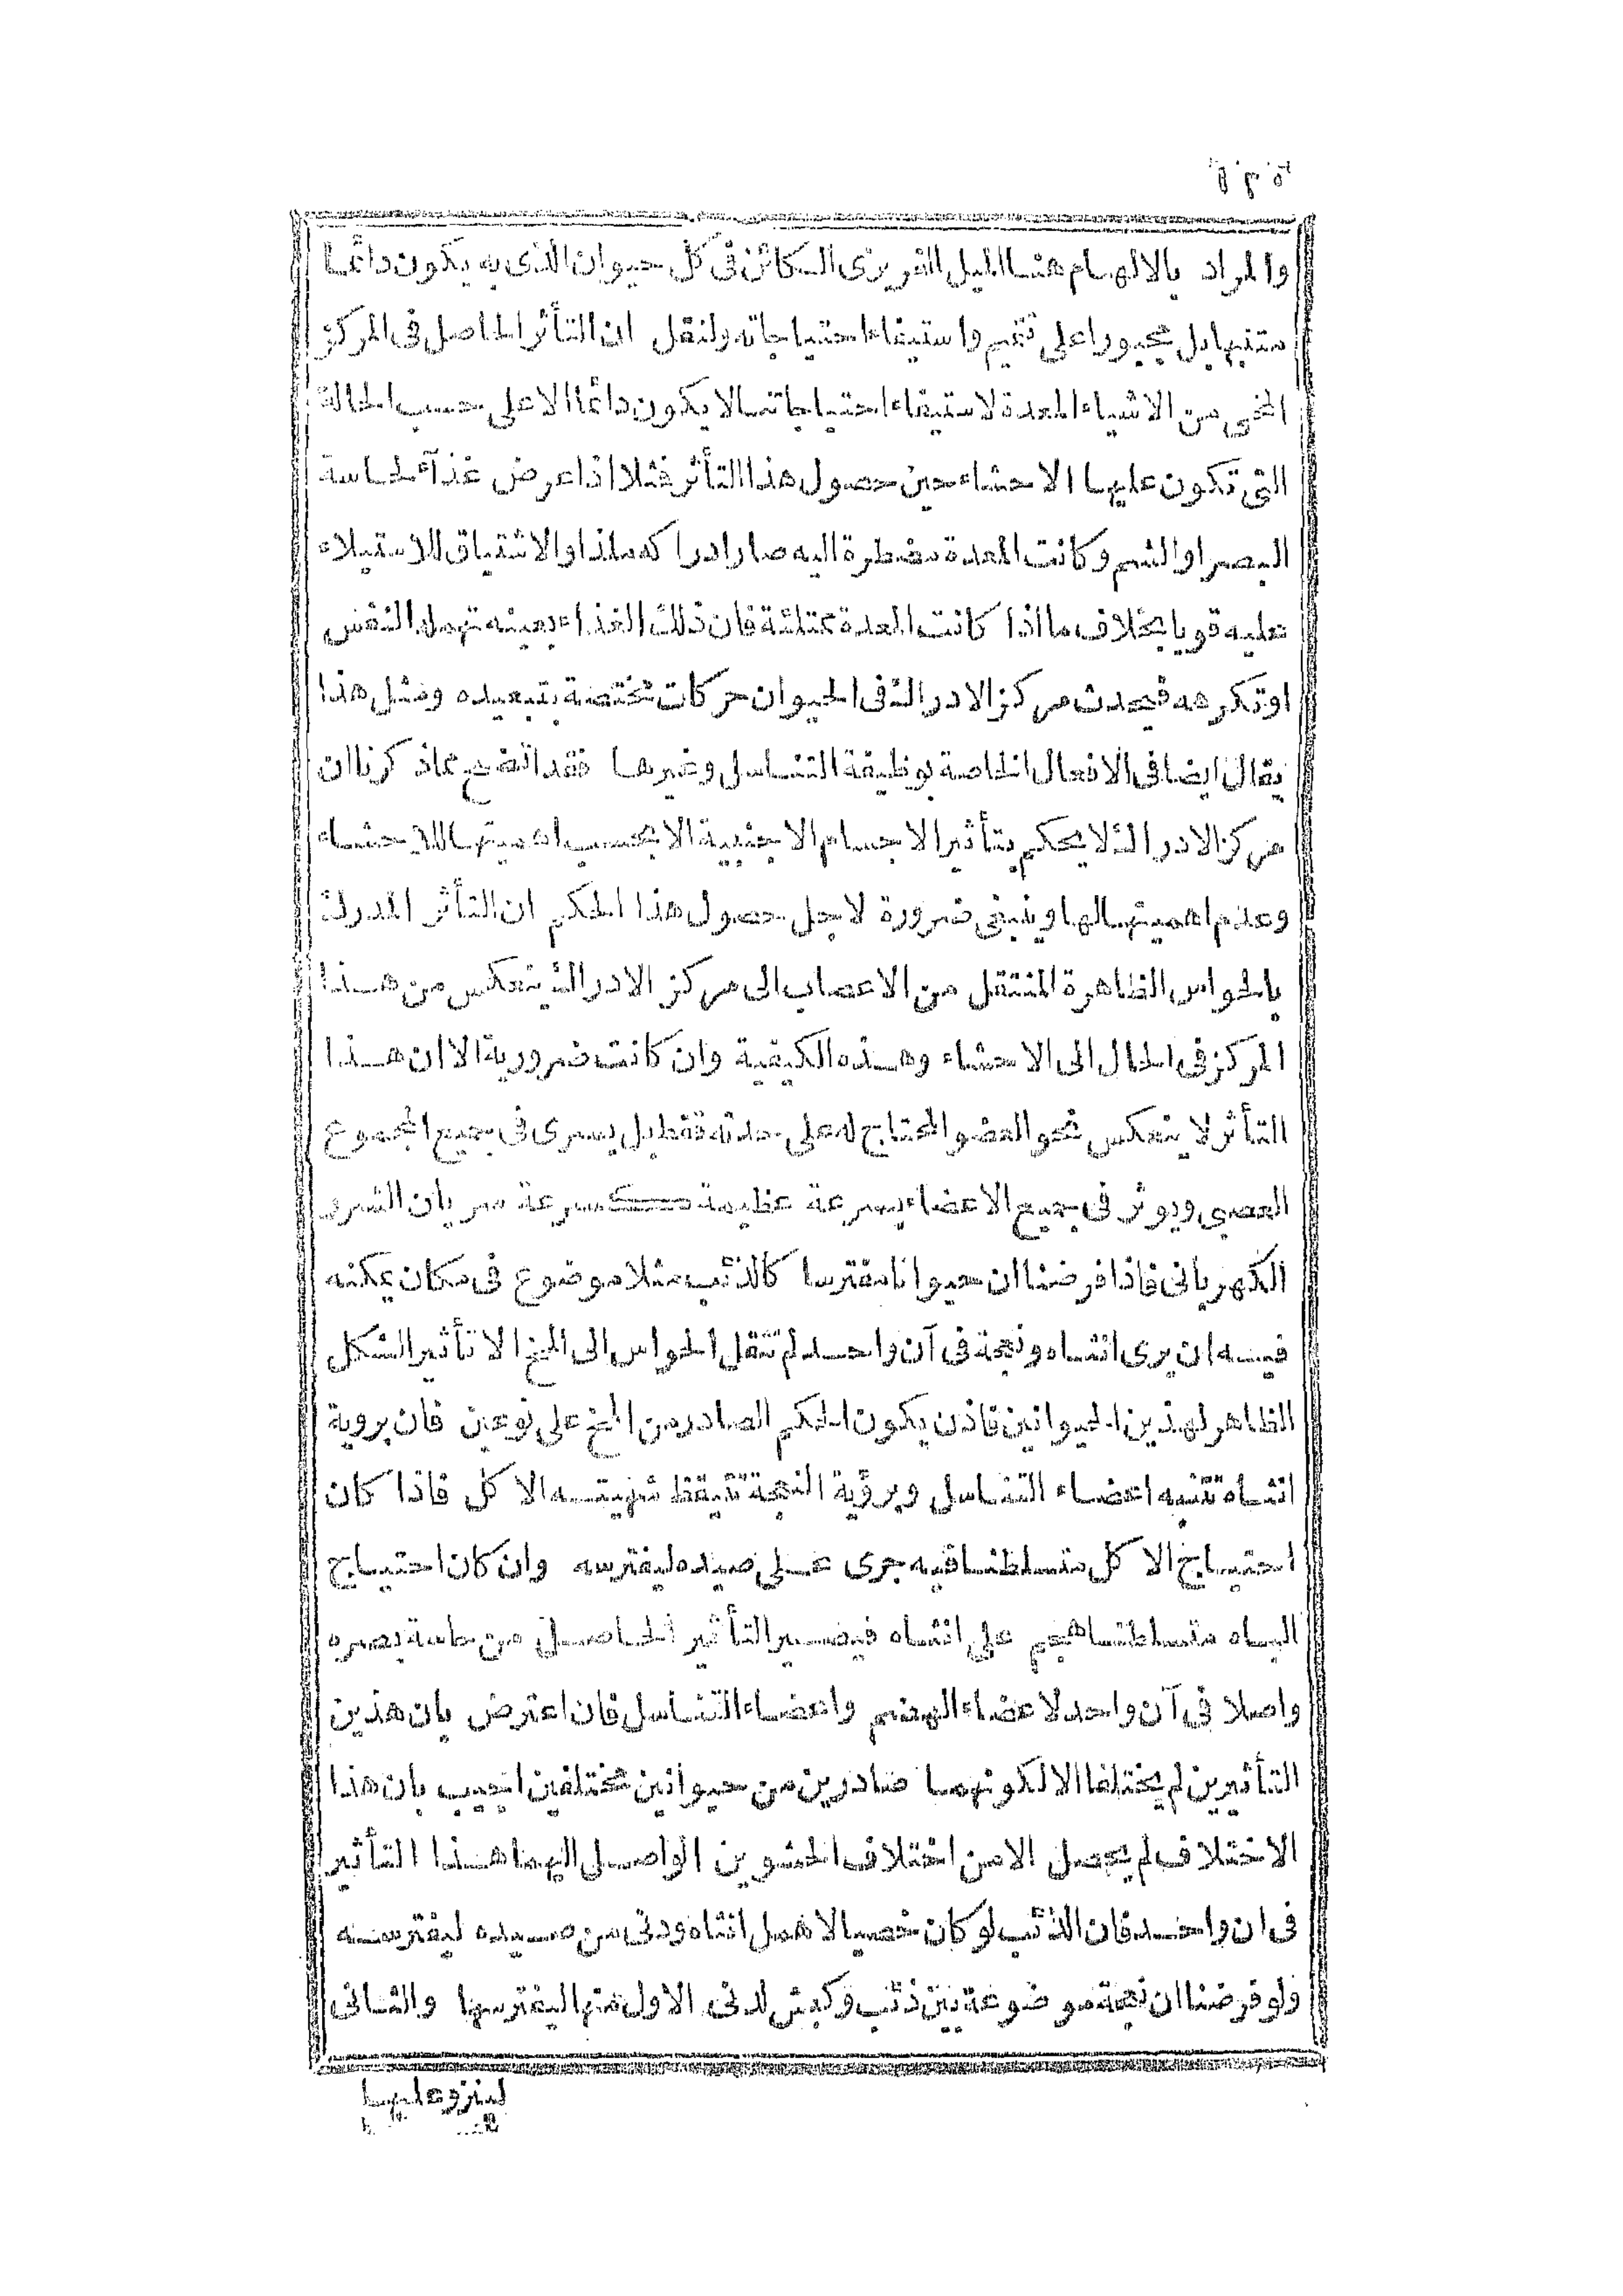 والمراد بالالهام هنا الميل الغريزى الكائن فى كل حيوان الذى به يكون دائما
متنبها بل مجبورا على تتميم واستيفاء احتياجاته ولنقل ان التأثر الحاصل فى المركز
المخى من الاشياء المعدة لاستيفاء احتياجاتنا لا يكون دائما الا على حسب الحالة
التى تكون عليها الاحشاء حين حصول هذا التأثر فمثلا اذا عرض غذآء لحاسة
البصر او الشم وكانت المعدة مضطرة اليه صار ادراكه ملذا والاشتياق للاستيلاء
عليه قويا بخلاف ما اذا كانت المعدة ممتلئة فان ذلك الغذاء بعينه تهمله النفس
او تكرهه فيحدث مركز الادراك فى الحيوان حركات مختصة بتبعيده ومثل هذا
يقال ايضا فى الافعال الخاصة بوظيفة التناسل وغيرها فقد اتضح مماذكرنا ان
مركز الادراك لا يحكم بتأثير الاجسام الاجنبية الا بحسب اهميتها للاحشاء
وعدم اهميتها لها وينبغى ضرورة لاجل حصول هذا الحكم ان التأثر المدرك
بالحواس الظاهرة المنتقل من الاعصاب الى مركز الادراك ينعكس من هذا
المركز فى الحال الى الاحشاء وهذه الكيفية وان كانت ضرورية الا ان هذا
التأثر لا ينعكس نحو العضو المحتاج له على حدته فقط بل يسرى فى جميع المجموع
العصبى ويوثر فى جميع الاعضاء بسرعة عظيمة كسرعة سريان الشرر
الكهربائى فاذا فرضنا ان حيوانا مفترسا كالذئب مثلا موضوع فى مكان يمكنه
فيه ان يرى انثاه ونعجة فى آن واحد لم تنقل الحواس الى المخ الا تأثير الشكل
الظاهر لهذين الحيوانين فاذن يكون الحكم الصادر من المخ على نوعين فان بروية
انثاه تتنبه اعضاء التناسل وبرؤية النعجة تتيقظ شهيته الاكل فاذا كان
احتياج الاكل متسلطنا فيه جرى على صيده ليفترسه وان كان احتياج
الباه متسلطنا هجم على انثاه فيصير التأثير الحاصل من حاسة بصره
واصلا فى آن واحد لاعضاء الهضم واعضاء التناسل فان اعترض بان هذين
التأثيرين لم يختلفا الا لكونهما صادرين من حيوانين مختلفين اجيب بان هذا
الاختلاف لم يحصل الا من اختلاف الحشوين الواصل اليهما هذا التأثير
فى ان واحد فان الذئب لو كان خصيا لاهمل انثاه ودنى من صيده ليفترسه
ولو فرضنا ان نعجة موضوعة بين ذئب وكبش لدنى الاول منها ليفترسها والثانى
لينزو عليها